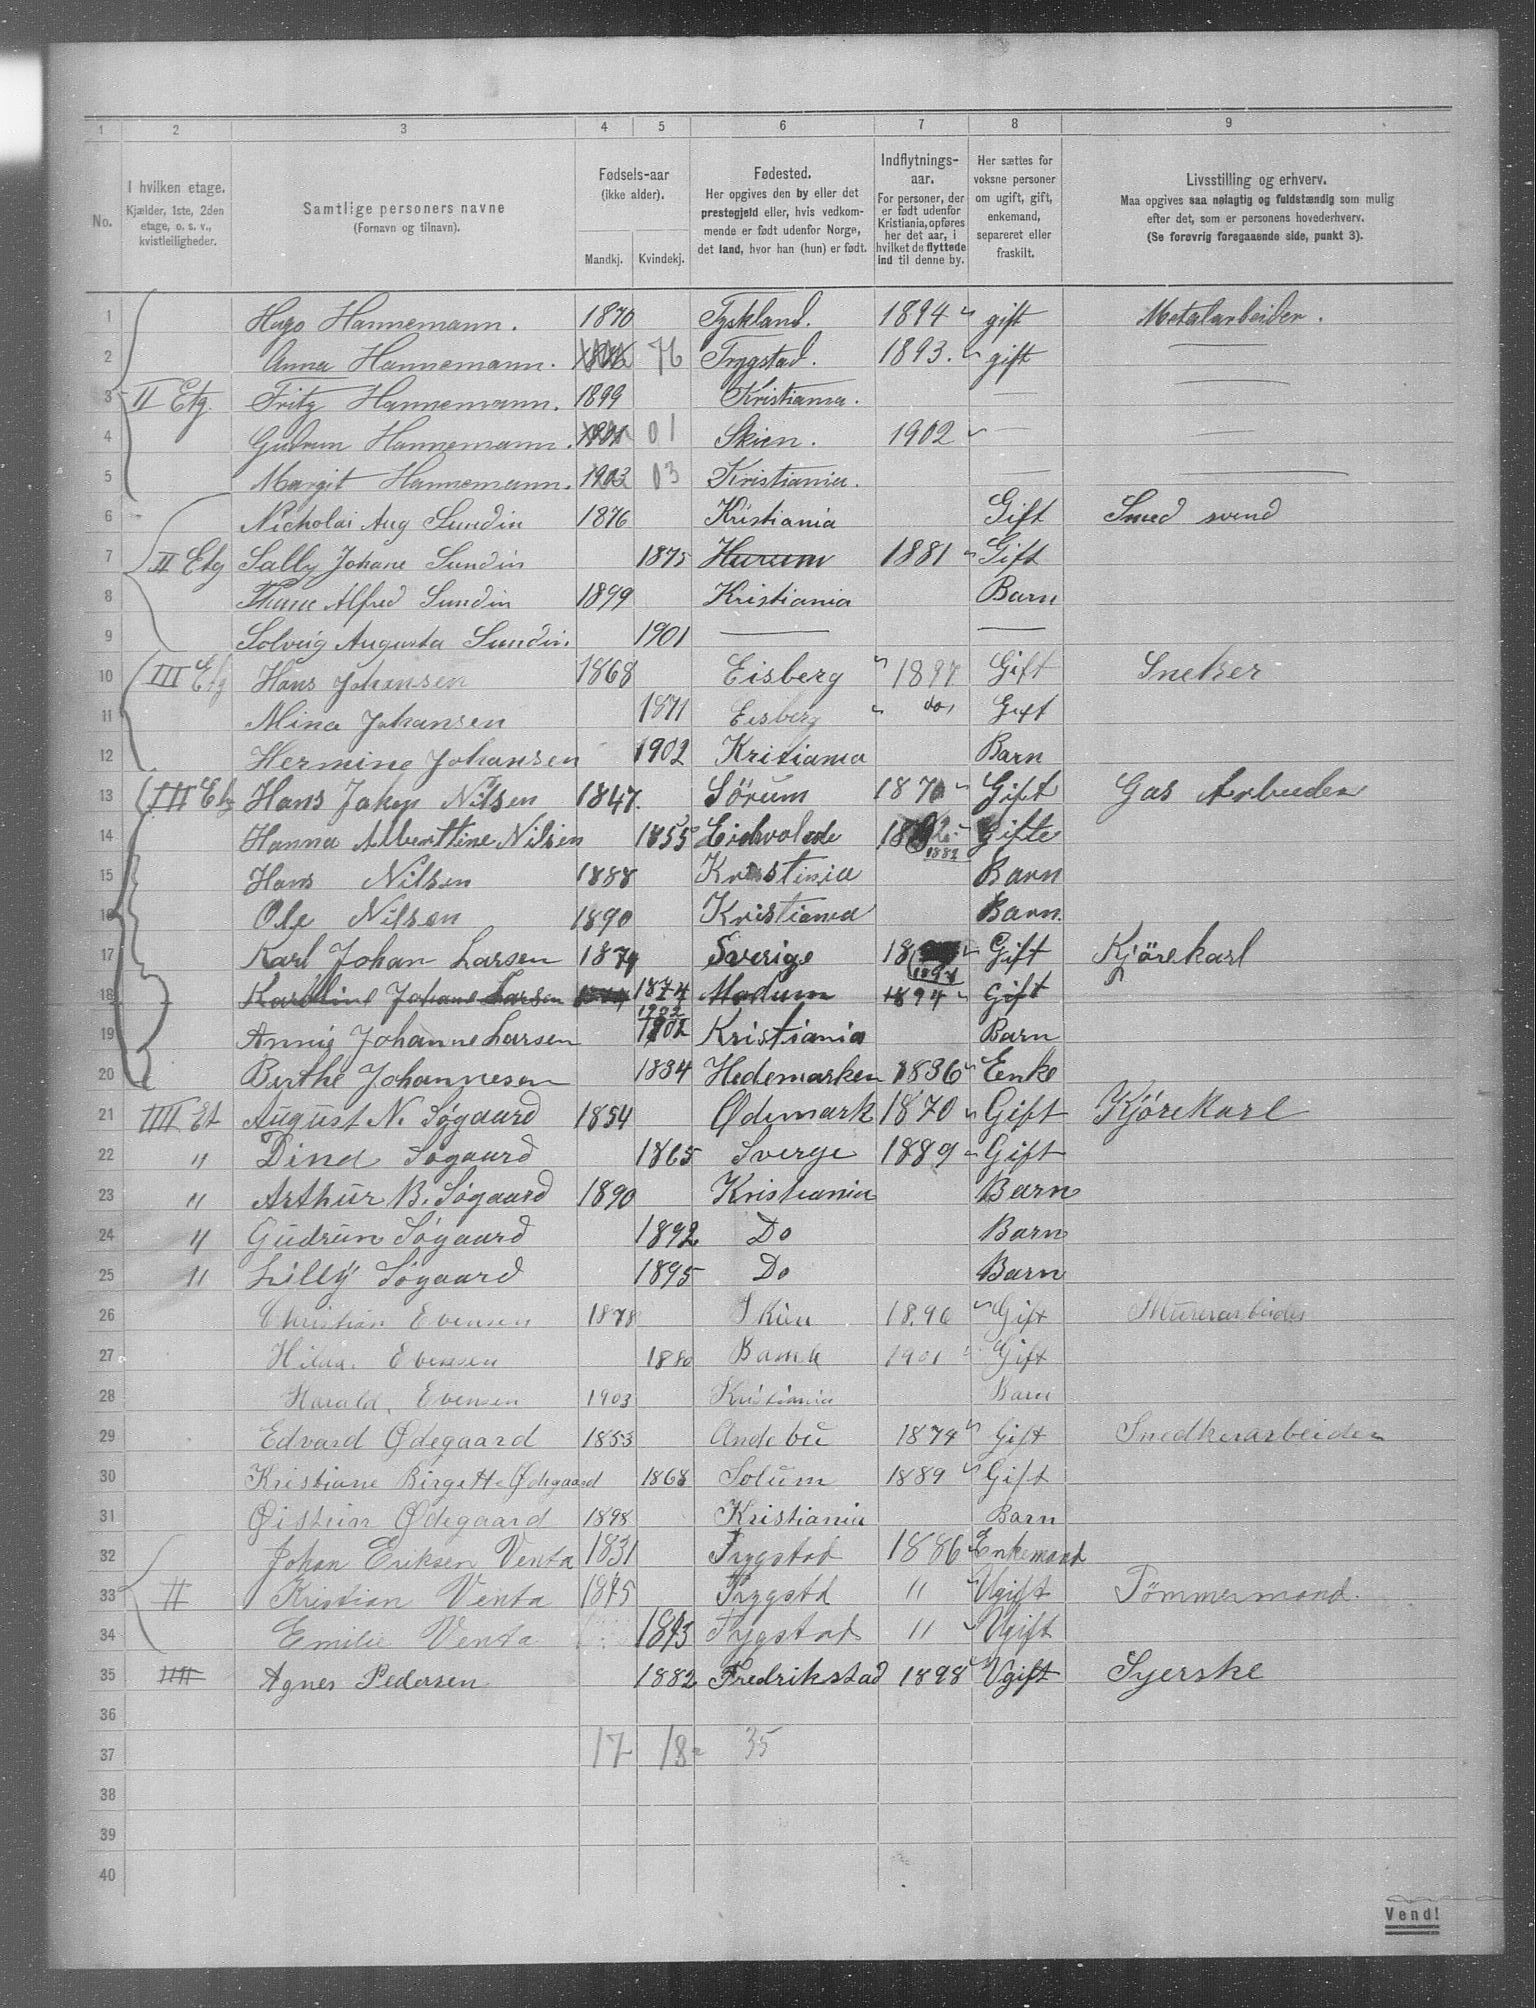 1 2 3 4 5 6 7 8 9
No.
I hvilken etage.
Kjælder, 1ste, 2den
etage, o. s. v.,
kvistleiligheder.
Samtlige personers navne
(Fornavn og tilnavn).
Fødsels-aar
(ikke alder).
Mandkj. Kvindekj.
Fødested.
Her opgives den by eller det
prestegjeld eller, hvis vedkom-
mende er født udenfor Norge,
det land, hvor han (hun) er født.
Indflytnings-
aar.
For personer, der
er født udenfor
Kristiania, opføres
her det aar, i
hvilket de flyttede
ind til denne by.
Her sættes for
voksne personer
om ugift, gift,
enkemand,
separeret eller
fraskilt.
Livsstilling og erhverv.
Maa opgives saa nøiagtig og fuldstændig som mulig
efter det, som er personens hovederhverv.
(Se forøvrig foregaaende side, punkt 3).
1 Hugo Hannemann. 1870 Tyskland. 1894 gift Metalarbeider.
2 Anna Hannemann. 76 Trygstad. 1893. gift —
3 II Etg. Fritz Hannemann. 1899 Kristiania. — —
4 Gudrun Hannemann. 01 Skien. 1902 — —
5 Margit Hannemann. 1903 03 Kristiania. — —
6 Nicholai Aug Sundin 1876 Kristiania Gift Smed svend
7 II Etg Sally Johane Sundin 1875 Hurum 1881 Gift
8 Alfred Sundin 1899 Kristiania Barn
9 Solveig Augusta Sundin. 1901 — —
10 III Etg Hans Johansen 1868 Eisberg 1897 Gift Snekser
11 Mina Johansen 1871 Eisberg do, Gift
12 Hermine Johansen 1902 Kritiania Barn
13 III Etg Hans Jakop Nilsen 1847. Sörum 1870 Gift Gas Arbueden
14 Hanna Alberttine Nilsen 1855 Eidvolde 1882 Gifte
15 Hans Nilsen 1888 Kristinia Barn
16 Ole Nilsen 1890 Kristiania Barn.
17 Karl Johan Larsen 1874 Sverige 1894 Gift Kjörekarl
18 Karoline Johane Larsen 1874 Modum 1894 Gift
19 Annie Johanne Larsen 1902 1902 Kristiania Barn
20 Berthe Johannesen 1834 Hedemarken 1836 Enke
21 IIII Et August N. Søgaard 1854 Ødemark 1870 Gift Kjörekarl
22 " Dina Søgaard 1865 Sverge 1889 Gift
23 " Arthur B. Søgaard 1890 Kristiania Barn
24 " Gudrun Søgaard 1892 Do Barn
25 " Lilly Søgaard 1895 Do Barn
26 Christian Evensen 1878 Skien 1896 Gift Murerarbeider
27 Hilda. Evensen 1880 Bamle 1901 Gift
28 Harald. Evensen 1903 Kristiania Barn
29 Edvard Ødegaard 1853 Andebu 1874 Gift Snedkerarbeider
30 Kristiane Birgette Ødegaard 1868 Solum 1889 Gift
31 Øistein Ødegaard 1898 Kristiania Barn
32 Johan Eriksen Venta 1831 Trygstad 1886 Enkemand
33 II Kristian Venta 1875 Trygstd " Ugift Tömmermand.
34 Emilie Venta 1873 Trygstad " Ugift
35 IIII Agnes Pedersen 1882 Fredrikstad 1898 Ugift Syerske
36
37 17 18 35
38
39
40
Vend!